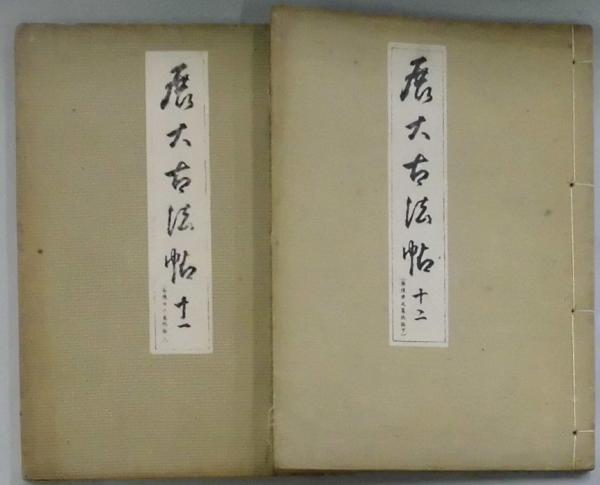 展大古法帖 十一
展大古法帖 十二